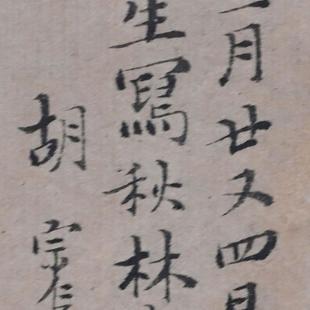 月廿又四日
生寫秋林
胡宗